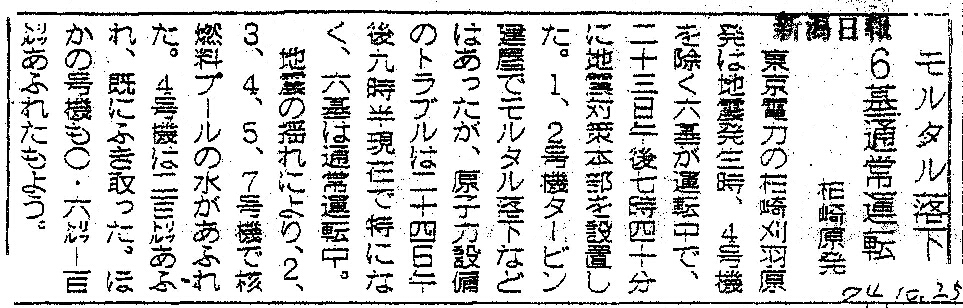 新潟日報
モルタル落下
6基通常運転
柏崎原発
東京電力の柏崎刈羽原
発は地震発生時、4号機
を除く六基が運転中で、
二十三日午後七時四十分
に地震対策本部を設置し
た。1、2号機タービン
建屋でモルタル落下など
はあったが、原子力設備
のトラブルは二十四日午
後九時半現在で特にな
く、六基は通常運転中。
地震の揺れにより、2、
3、4、5、7号機で核
燃料プールの水があふれ
た。4号機は二百㍑あふ
れ、既にふき取った。ほ
かの号機も〇・六㍑―百
㍑あふれたもよう。
04.10.25